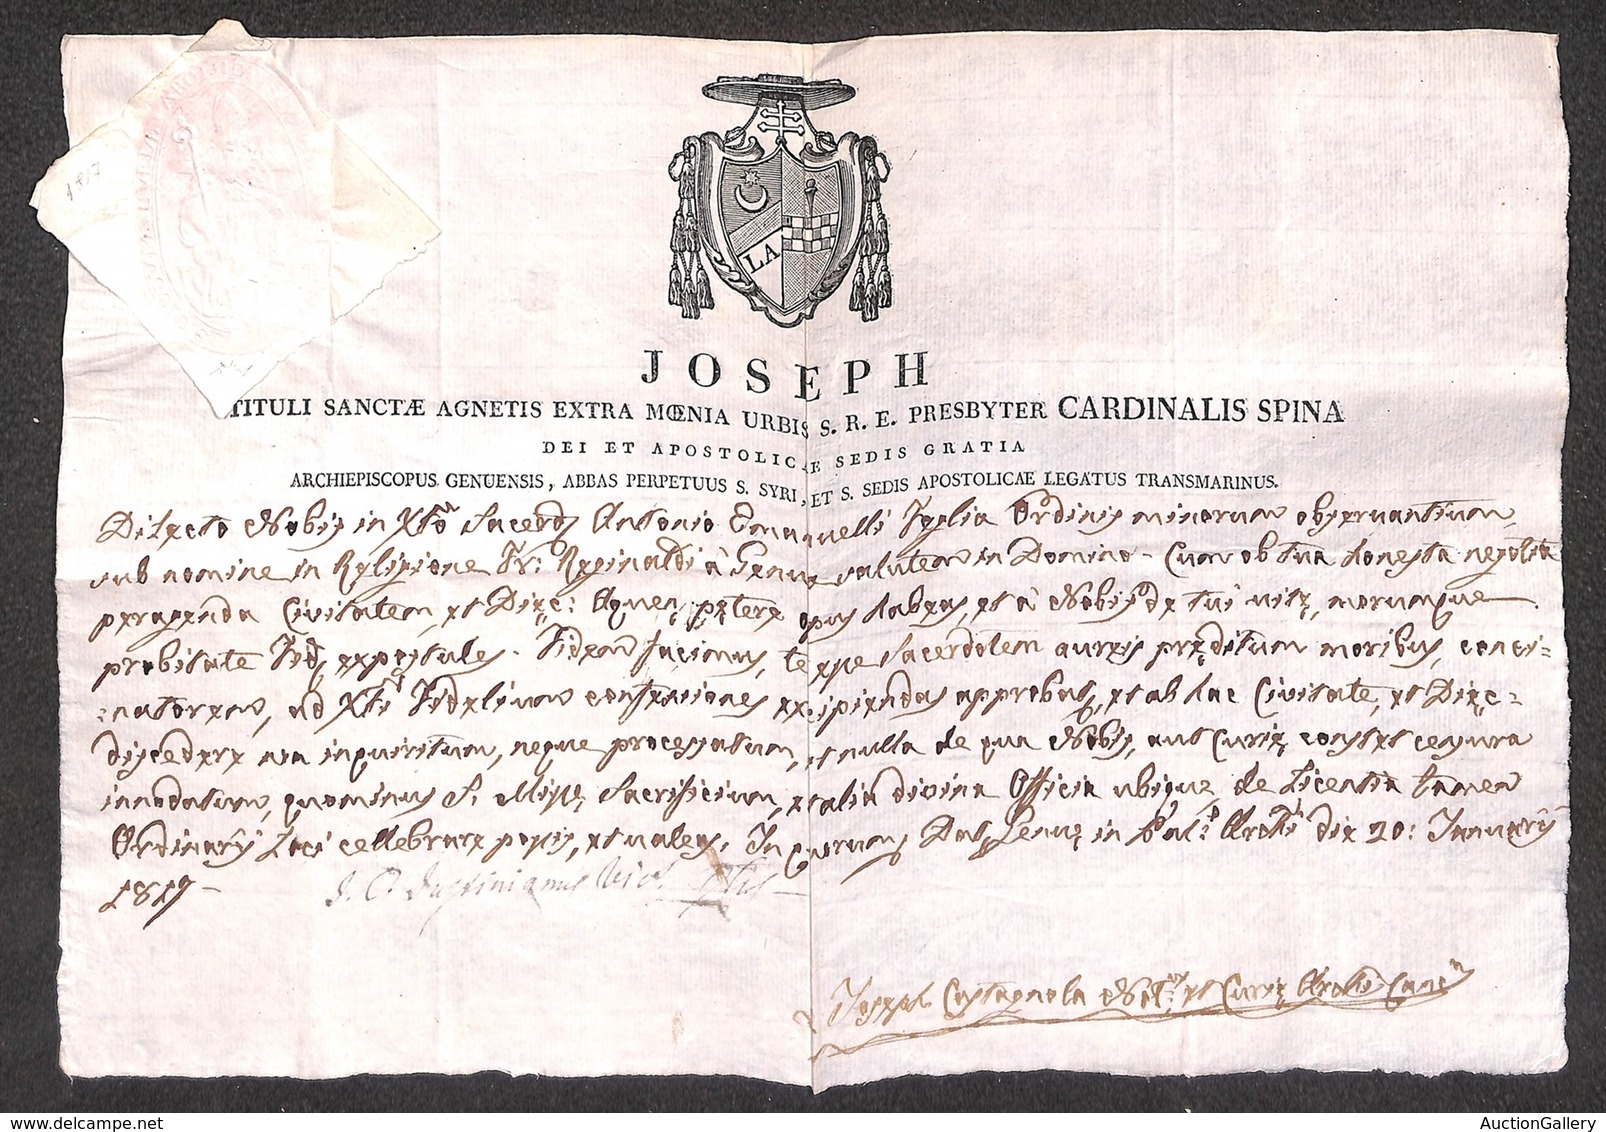 1817
LA
JOSEPH
TITULI SANCTÆ AGNETIS EXTRA MŒNIA URBIS S. R. E. PRESBYTER CARDINALIS SPINA
DEI ET APOSTOLICÆ SEDIS GRATIA
ARCHIEPISCOPUS GENUENSIS, ABBAS PERPETUUS S. SYRI, ET S. SEDIS APOSTOLICAE LEGATUS TRANSMARINUS.
Dilecto Nobis in Xto Sacerd. Antonio Emanuelli Iglia Ordinis minorum observantium,
sub nomine in Religione Fr. Reginaldi à Genua salutem in Domino - Cum ob tua honesta negotia
peragenda Civitatem, et Diæc: Aquen, petere opus habeas, et à Nobis de tui vitę, morumque
probitate fid, expostules. Fidem facimus, teque Sacerdotem aureis pręditum moribus, conci-
-natorem, ad Xti Fidelium confessiones excipiendas approbas, et ab hac Civitate, et Diœc-
discedere non inquisitum, neque processatum, et nulla de qua Nobis, aut Curię constet censura
innodatum, quominus S. Missę Sacrificium, et alia divina Officia ubique de licentia tamen
Ordinarÿ Loci cellebrare possis, et valeas. In quorum Dat. Genuę in Pal. Archi die 20: Januarÿ
1817 -
Justinianus Vic.
Joseph Castagnola Not. et Curię Archi Canc
AuctionGallery